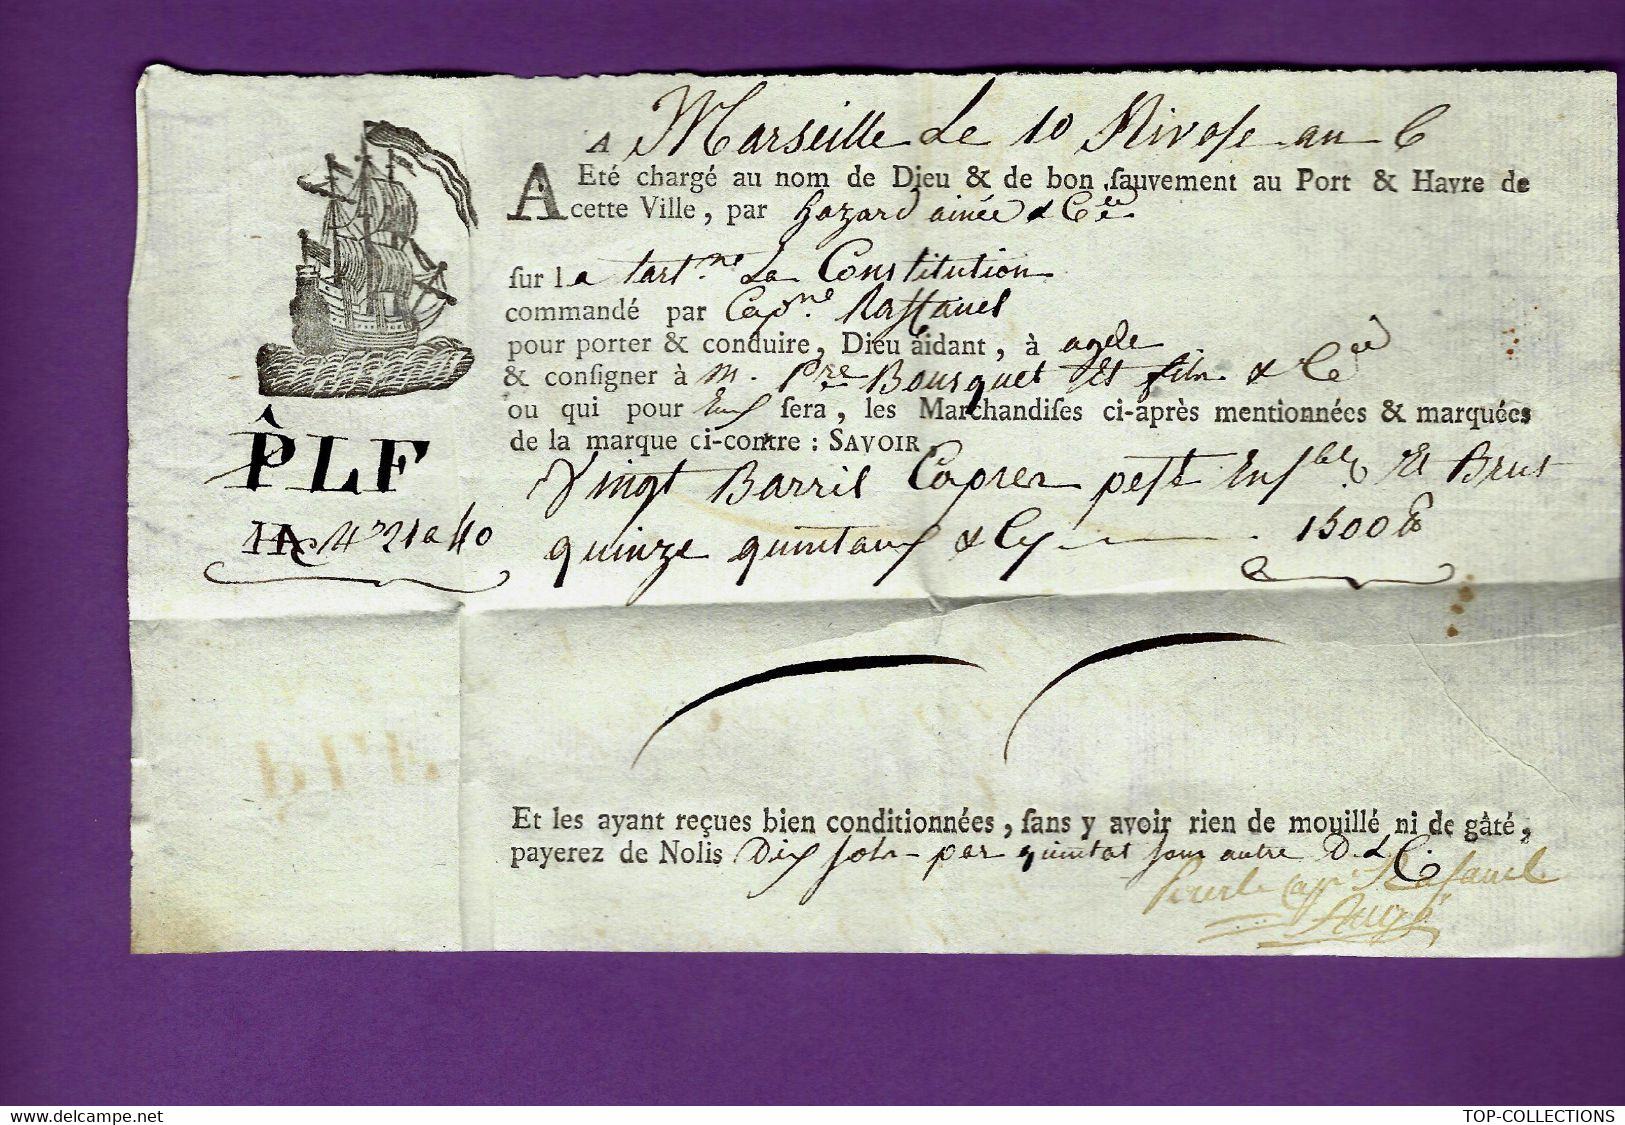 A Marseille Le 10 Nivose an 6
A Eté chargé au nom de Dieu & de bon ſauvement au Port & Havre de
cette Ville, par hazard ainée & Cie
ſur la tartne La Constitution
commandé par Capne Raffauel
pour porter & conduire, Dieu aidant, à agde
& conſigner à M. Pre Bousquet et fils & Cie
ou qui pour Eux ſera, les Marchandiſes ci-après mentionnées & marquées
de la marque ci-contre : SAVOIR,
PLF
Vingt Barril Capres pest Ensble Et Brut
No 21 a 40
quinze quintaux & Cy 1500 lb
Et les ayant reçues bien conditionnées, ſans y avoir rien de mouillé ni de gâté,
payerez de Nolis Dix Sols par quintal sans autre D. & C.
pour le capne
delcampe.net
TOP-COLLECTIONS